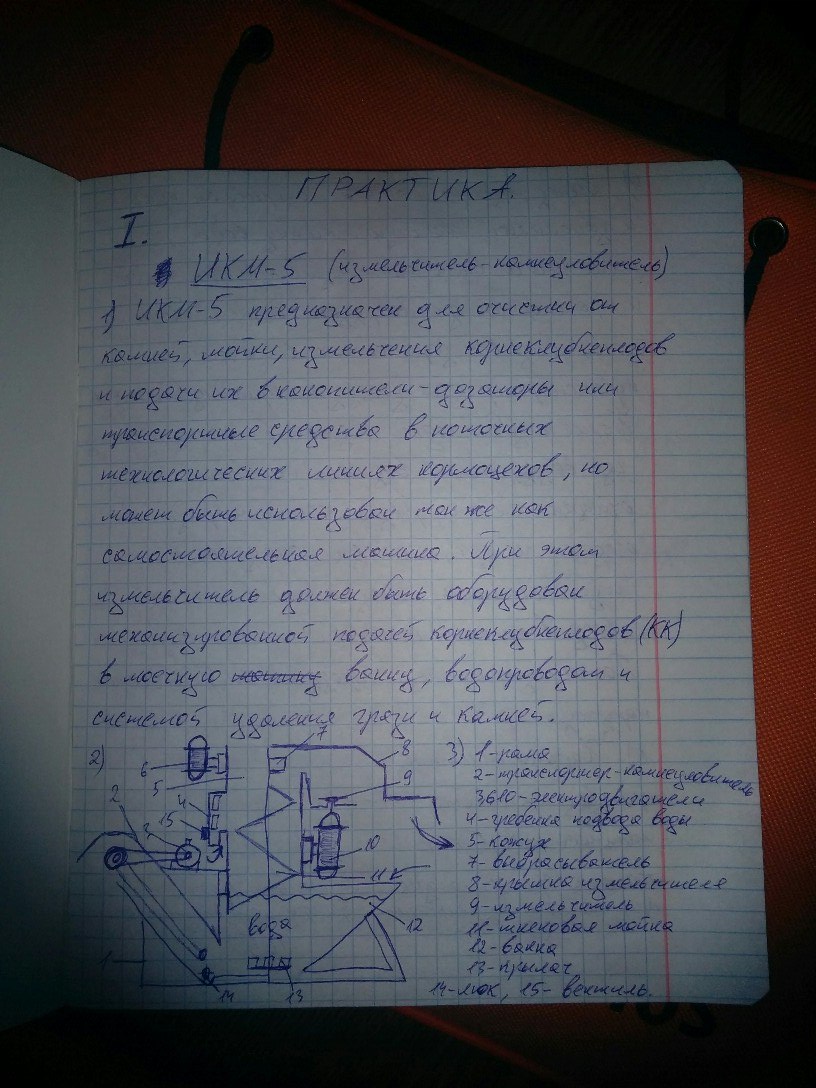 ПРАКТИКА.
I.
ИКМ-5 (измельчитель-камнеуловитель)
1) ИКМ-5 предназначен для очистки от
камней, мойки, измельчения корнеклубнеплодов
и подачи их в накопители-дозаторы или
транспортные средства в поточных
технологических линиях кормоцехов, но
может быть использован так же как
самостоятельная машина. При этом
измельчитель должен быть оборудован
механизированной подачей корнеклубнеплодов (КК)
в моечную ванну, водопроводом и
системой удаления грязи и камней.
2)
6
5
4
15
2
3
1
14
13
12
11
10
9
8
7
вода
3) 1-рама
2-транспортер-камнеуловитель
3,6,10-электродвигатели
4-гребенка подвода воды
5-кожух
7-выбрасыватель
8-крышка измельчителя
9-измельчитель
11-шнековая мойка
12-ванна
13-крылач
14-люк, 15-вентиль.